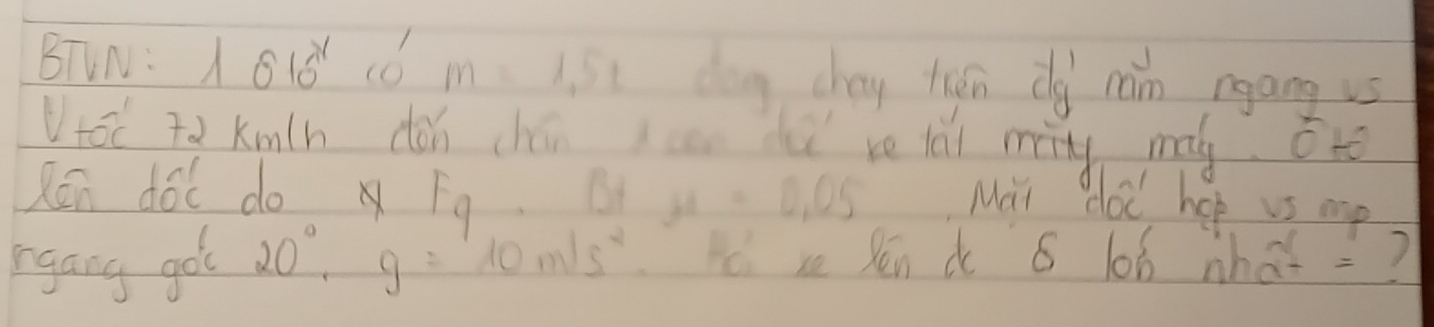 BTVN: 1 ôtô có m = 1,5t đang chạy trên đg nằm ngang vs
Vtốc 72 km/h đến chân 1 con dốc xe tắt máy. Ôtô
lên dốc do Fq. Bt μ = 0,05. Mặt dốc hợp vs mp
ngang góc 20°. g = 10 m/s². Hỏi xe lên dc S lớn nhất = ?